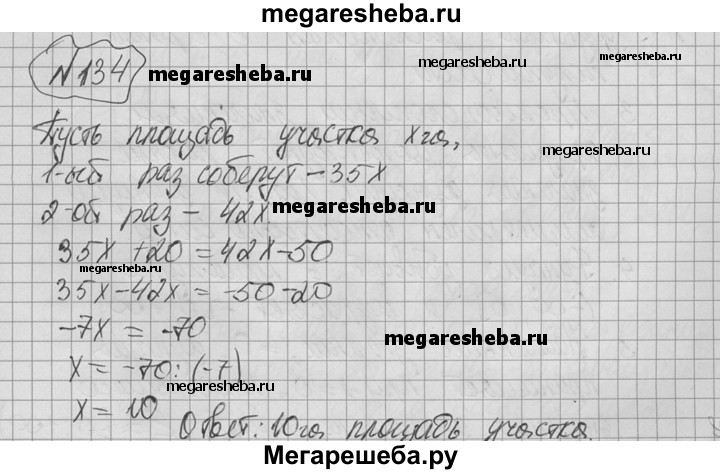 megaresheba.ru
N134
megaresheba.ru
megaresheba.ru
Пусть площадь участка xга,
megaresheba.ru
1-ый раз соберут - 35x
2-ой раз - 42x
megaresheba.ru
35x + 20 = 42x - 50
megaresheba.ru
35x - 42x = -50 - 20
-7x = -70
megaresheba.ru
x = -70 : (-7)
megaresheba.ru
x = 10
Ответ: 10га площадь участка.
Мегарешеба.ру